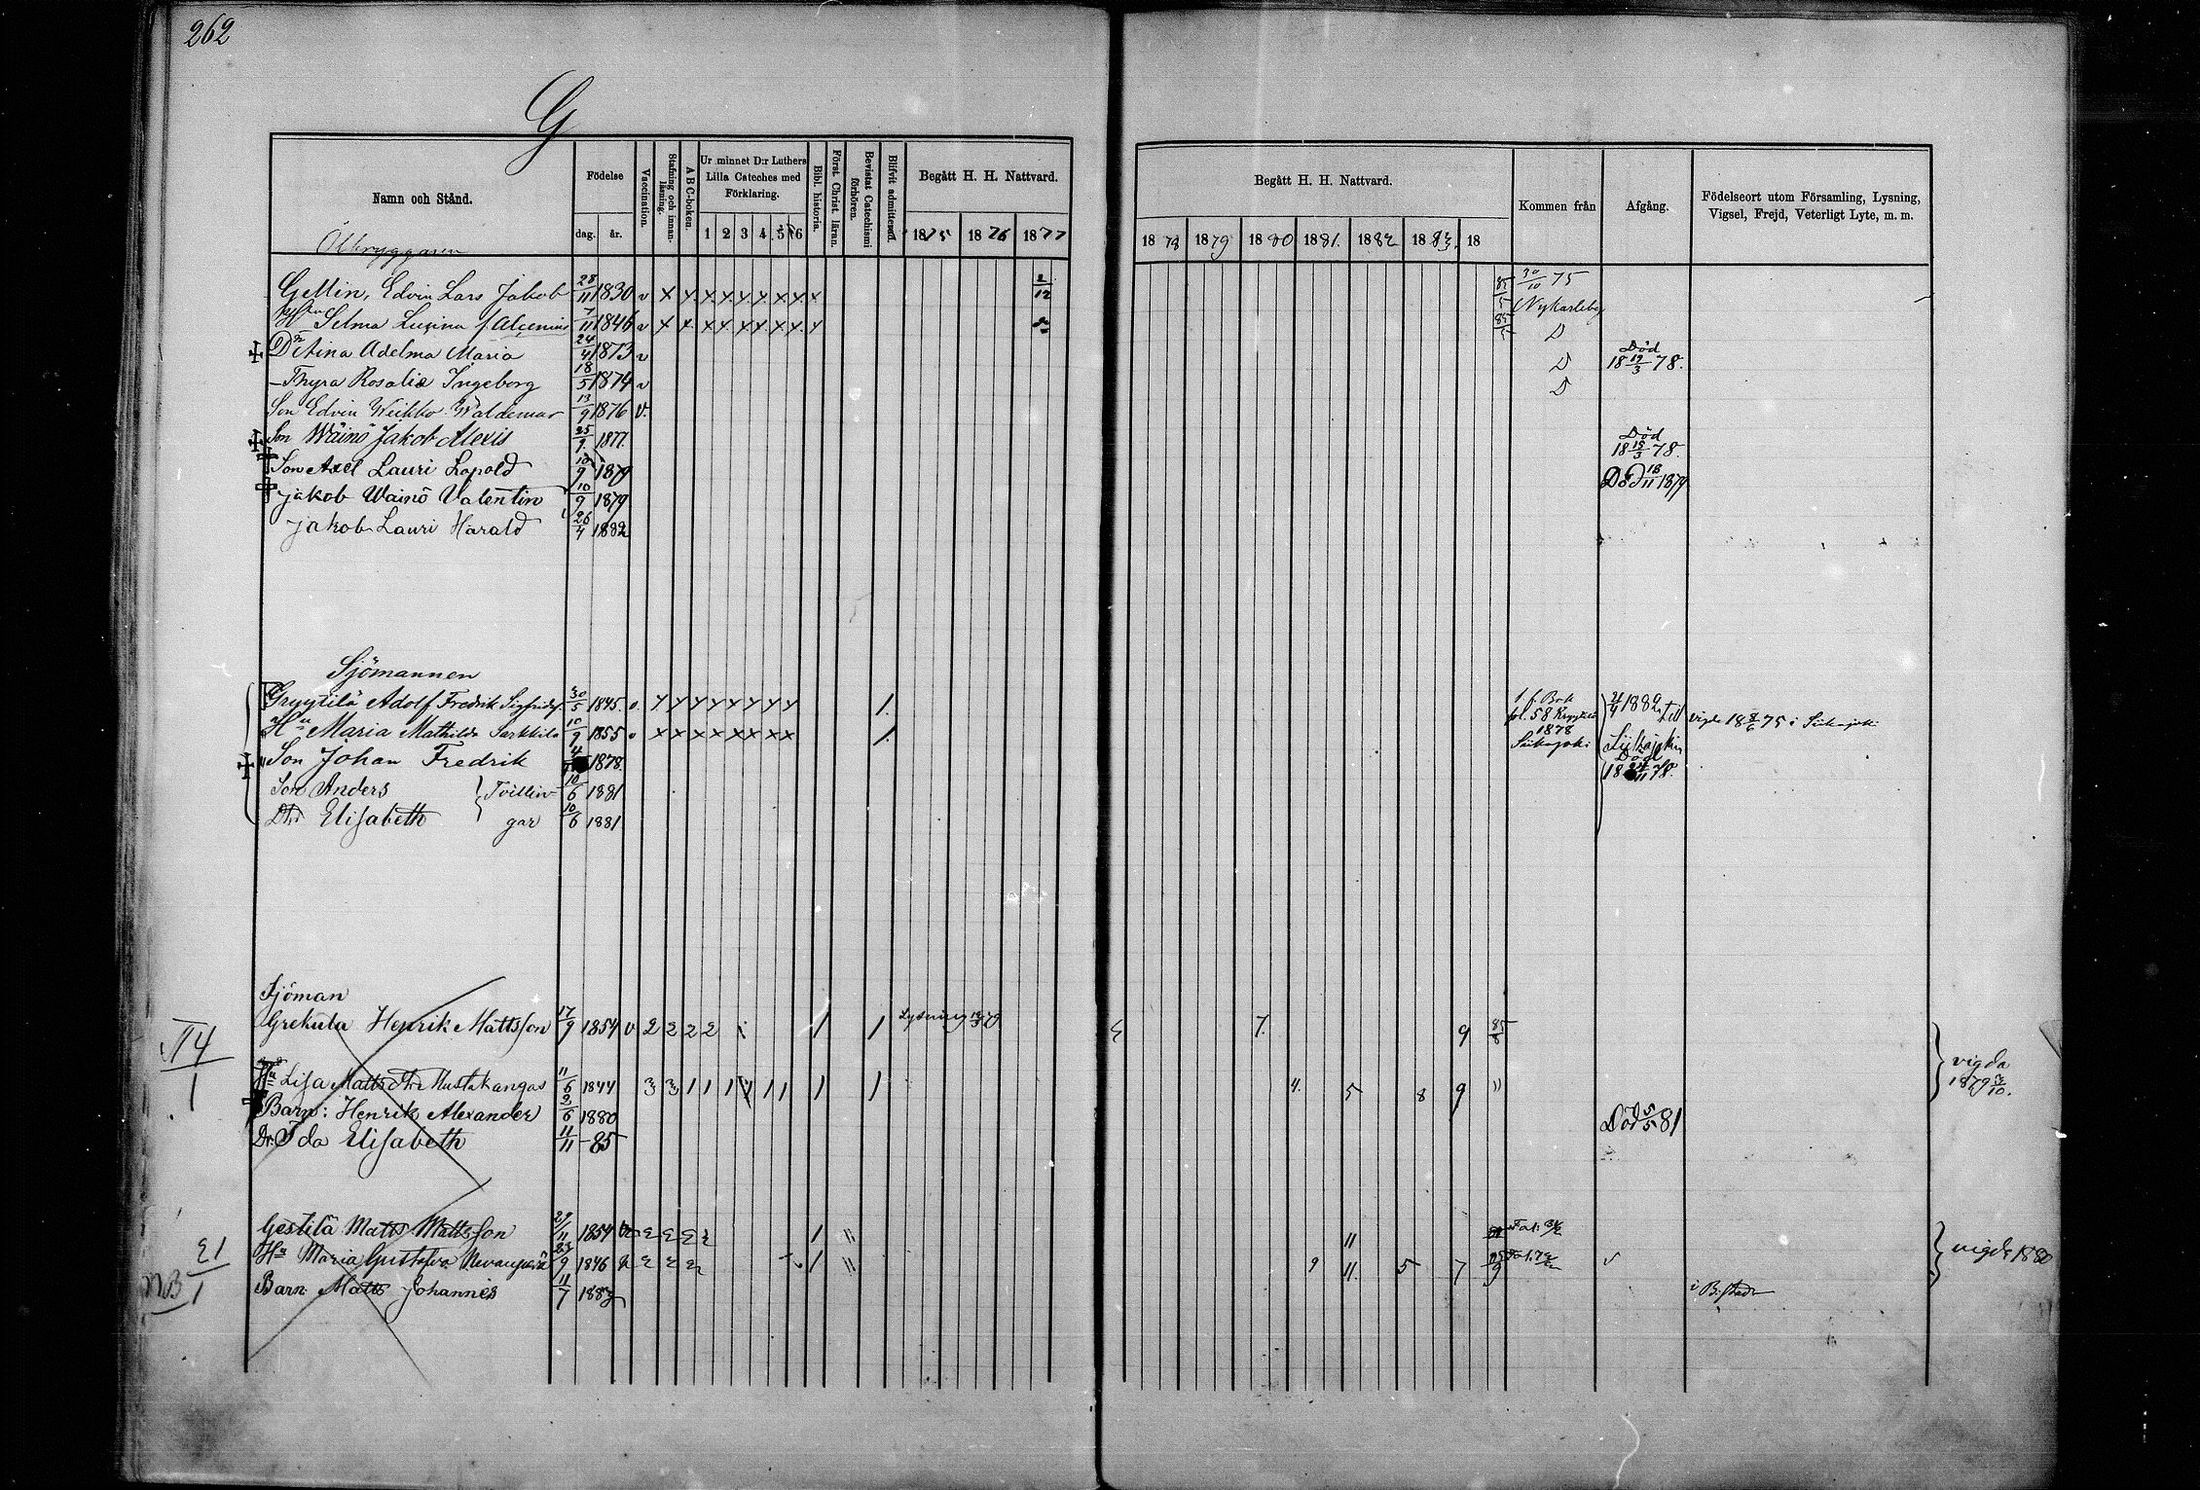 262
G
Namn och Stånd. Födelse dag. år. Vaccination. Stafning och innanläsning. A B C-boken. Ur minnet D:r Luthers Lilla Cateches med Förklaring. 1 2 3 4 5 6 Bibl. historia. Först. Christ. läran. Bevistat Catechismi förhören. Blifvit admitterad. Begått H. H. Nattvard. 1875 1876 1877
Begått H. H. Nattvard. 1878 1879 1880 1881. 1882 1883. 18 Kommen från Afgång. Födelseort utom Församling, Lysning, Vigsel, Frejd, Veterligt Lyte, m. m.
Ölbryggaren
Gellin, Edvin Lars Jakob 28/11 1830 v x x x x x x x x x 2/12 30/10 75
Selma Lusina f. Alcenius 7/11 1846 v x x x x x x x x x Nykarleby
Aina Adelma Maria 24/4 1873 v D Död 18 19/3 78.
– Thyra Rosalie Ingeborg 18/5 1874 v D
Son Edvin Weikko Waldemar 13/9 1876 v. D
Son Wäinö Jakob Alexis 25/9 1877. Död 18 15/3 78.
Son Axel Lauri Lopold 10/9 1879 Död 18/11 1879
Jakob Wäinö Valentin 10/9 1879
Jakob Lauri Harald 26/4 1882
Sjömannen
Gryytilä Adolf Fredrik Sigfridsf 30/5 1845. v. x x x x x x x x 1. 1. f. Bok fol. 58 1882 till
Hu Maria Mathilda Sarkkila 10/9 1855 v x x x x x x x x 1. 1878 Siikajoki Siikajoki vigde 18 6/6 75 i Siikajoki
Son Johan Fredrik 4 1878. Död 18 11 78.
Son Anders } Tvillin- 10/6 1881
Dtr Elisabeth } gar 10/6 1881
Sjöman
Grekula Henrik Mattsson 17/9 1854 v 2 2 2 2 1 1 Lysning 79 7. 9 85/8
Hu Lisa Mattsdtr Mustakangas 11/6 1844 3 3 1 1 1 1 1 1 1 1 4. 5 8 9 " } vigda 1879 10.
Barn: Henrik Alexander 2/6 1880 Död 5/5 81
Dr. Ida Elisabeth 11/11 –85
Gestilä Matts Mattsson 29/11 1854 1 " 11
Hu Maria Gustafva Nevanperä 23/9 1846 1 " 9 11. 5 7 } vigde 1880
Barn: Matts Johannes 11/7 1883 i B:stad
NB